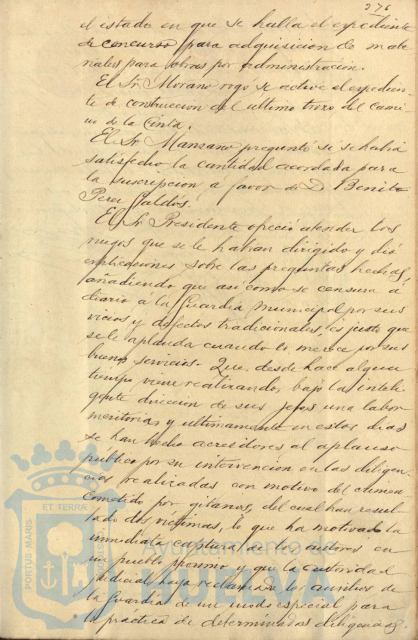 276
el estado en que se halla el expediente
de concurso para adquisicion de mate-
riales para obras por administracion.
El Sr. Morano rogó se active el expedien-
te de construccion del ultimo trozo del Cami-
no de la Cinta.
El Sr. Manzano preguntó si se habia
satisfecho la cantidad acordada para
la suscripcion a favor de D. Benito
Perez Galdós.
El Sr. Presidente ofreció atender los
ruegos que se le habian dirigido y dió
explicaciones sobre las preguntas hechas,
añadiendo que asi como se censura á
diario a la Guardia Municipal por sus
vicios y defectos tradicionales, es justo que
se le aplauda cuando lo merece por sus
buenos servicios. Que desde hace algun
tiempo viene realizando, bajo la inteli-
gente direccion de sus jefes una labor
meritoria, y ultimamente en estos dias
se han hecho acreedores al aplauso
publico por su intervencion en las diligen-
cias realizadas con motivo del crimen
cometido por gitanos, del cual han resul-
tado dos víctimas, lo que ha motivado la
inmediata captura de los autores en
un pueblo proximo y que la autoridad
judicial haya reclamado los auxilios de
la Guardia de un modo especial para
la práctica de determinadas diligencias
PORTUS MARIS
ET TERRAE
CUSTODIA
Ayuntamiento de
HUELVA